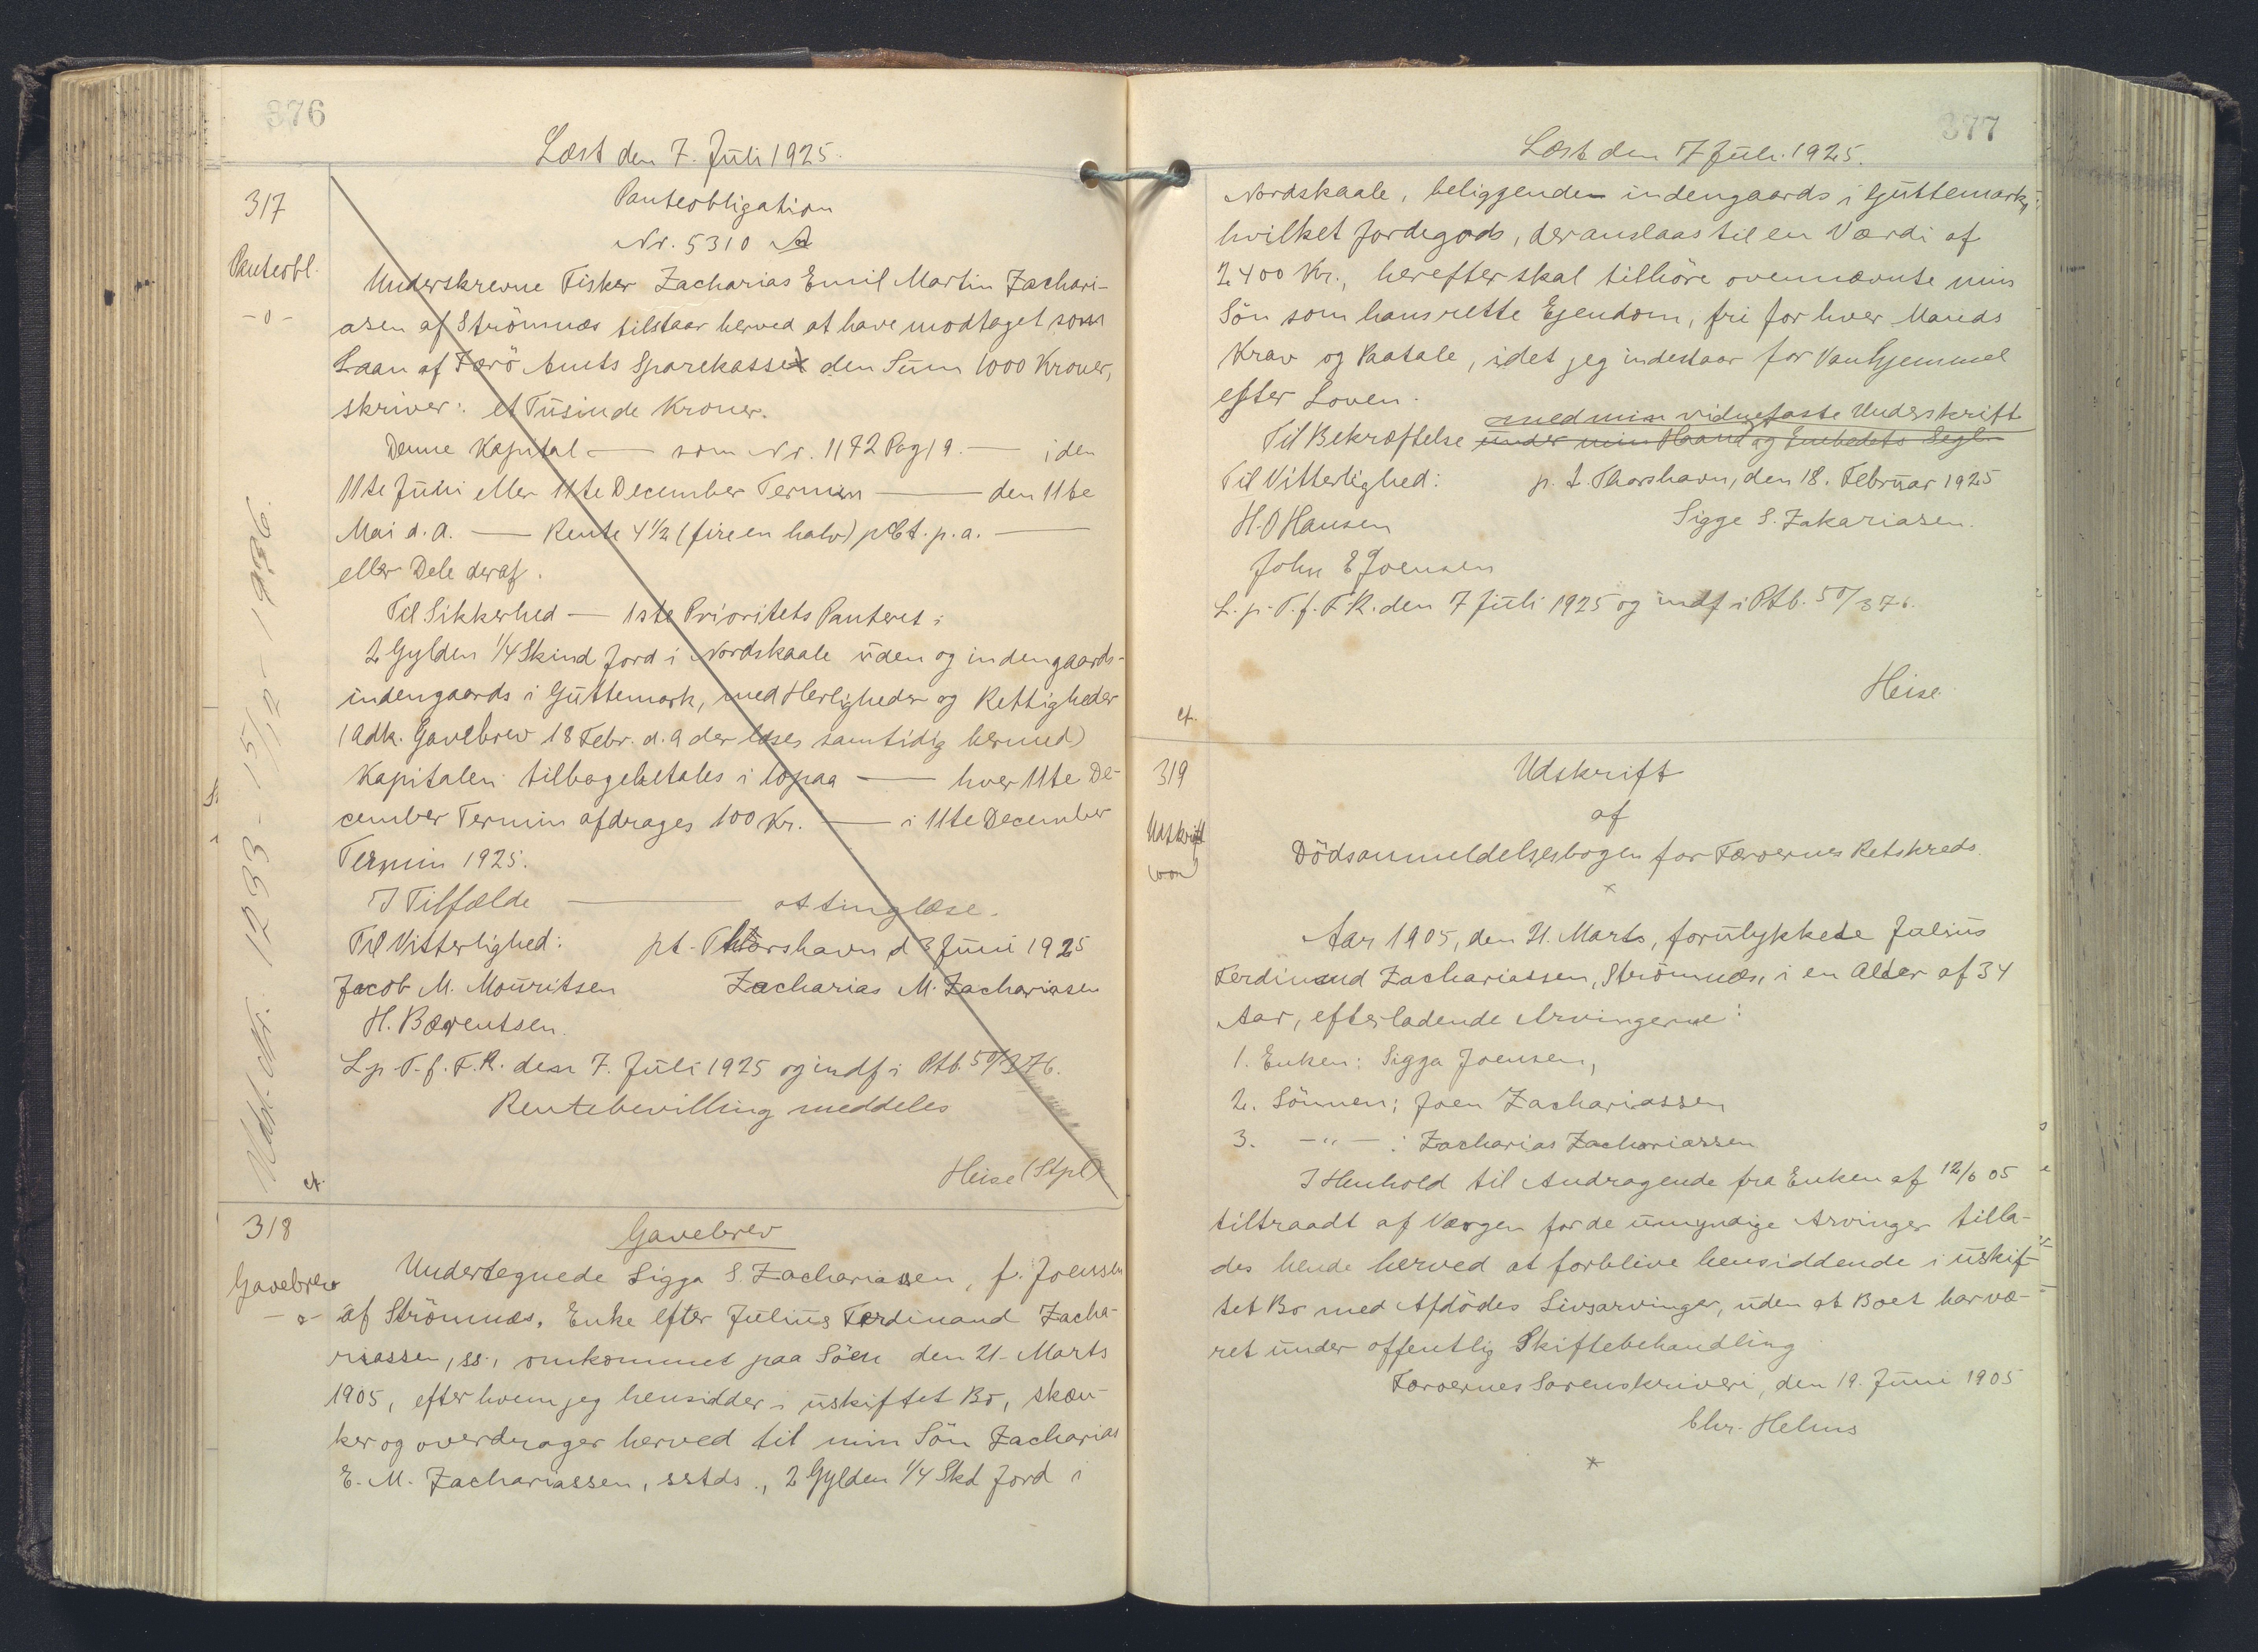 376
Læst den 7. Juli 1925.
317
Panteobl.
-o-
Panteobligation
Nr. 5310 A
Underskrevne Fisker Zacharias Emil Martin Zachari-
asen af Strömnæs tilstaar herved at have modtaget som
Laan af Færö Amts Sparekasse den Sum 1000 Kroner,
skriver: et Tusinde Kroner.
Denne Kapital — som Nr. 1192 Pag 19. — i den
11te Juni eller 11te December Termin — den 11te
Mai d. A. — Rente 4 1/2 (fire en halv) pCt. p. a. —
eller Dele deraf.
Til Sikkerhed — 1ste Prioritets Panteret i
2 Gylden 1/4 Skind Jord i Nordskaale uden og indengaards-
indengaards i Guttemark, med Herligheder og Rettigheder
(Adk. Gavebrev 18 Febr. d. A der læses samtidig hermed)
Kapitalen tilbagebetales i lopaa — hver 11te De-
cember Termin afdrages 100 Kr. — i 11te December
Termin 1925.
I Tilfælde — at tinglæse.
Til Vitterlighed: pt. Thorshavn d 3 Juni 1925
Jacob M. Mouritsen Zacharias M. Zachariasen
H. Bærentsen.
L. p. T. f. F. R. den 7. Juli 1925 og indf i Ptb. 5 0/376.
Rentebevilling meddeles
Heise (Stpl)
ct.
Udsl. Nr. 1233 - 15/12 - 1936.
318
Gavebrev
-o-
Gavebrev
Undertegnede Sigga S. Zachariasen, f. Joensen
af Strömnæs, Enke efter Julius Ferdinand Zacha-
riassen, ss., omkommet paa Söen den 21. Marts
1905, efter hvem jeg hensidder i uskiftet Bo, skæn-
ker og overdrager herved til min Sön Zacharias
E. M. Zachariassen, sstds., 2 Gylden 1/4 Skd Jord i
377
Læst den 7 Juli 1925.
Nordskaale, beliggende indengaards i Guttemark,
hvilket Jordegods, der anslaas til en Værdi af
2400 Kr., herefter skal tilhöre ovennævnte min
Sön som hans rette Ejendom, fri for hver Mands
Krav og Paatale, idet jeg indestaar for Vanhjemmel
efter Loven.
med min vidnefaste Underskrift
Til Bekræftelse under min Haand og Embedets Segl.
Til Vitterlighed: p. t. Thorshavn, den 18. Februar 1925
H. O Hansen Sigge S. Zakariasen.
John E Joensen
L. p. T. f. F. R. den 7 Juli 1925 og indf i Ptb. 5 0/376.
Heise
ct.
319
Udskrift
Udskrift
af
Dödsanmeldelsesbogen for Færöernes Retskreds.
Aar 1905, den 21. Marts, forulykkede Julius
Ferdinand Zachariassen, Strömnæs, i en Alder af 34
Aar, efterladende Arvingerne:
1. Enken: Sigga Joensen,
2. Sönnen: Joen Zachariassen
3. —"— : Zacharias Zachariassen
I Henhold til Andragende fra Enken af 12/6 05
tiltraadt af Værgen for de umyndige Arvinger tilla-
des hende herved at forblive hensiddende i uskif-
tet Bo med Afdödes Livsarvinger, uden at Boet har væ-
ret under offentlig Skiftebehandling
Færöernes Sorenskriveri, den 19. Juni 1905
Chr. Helms